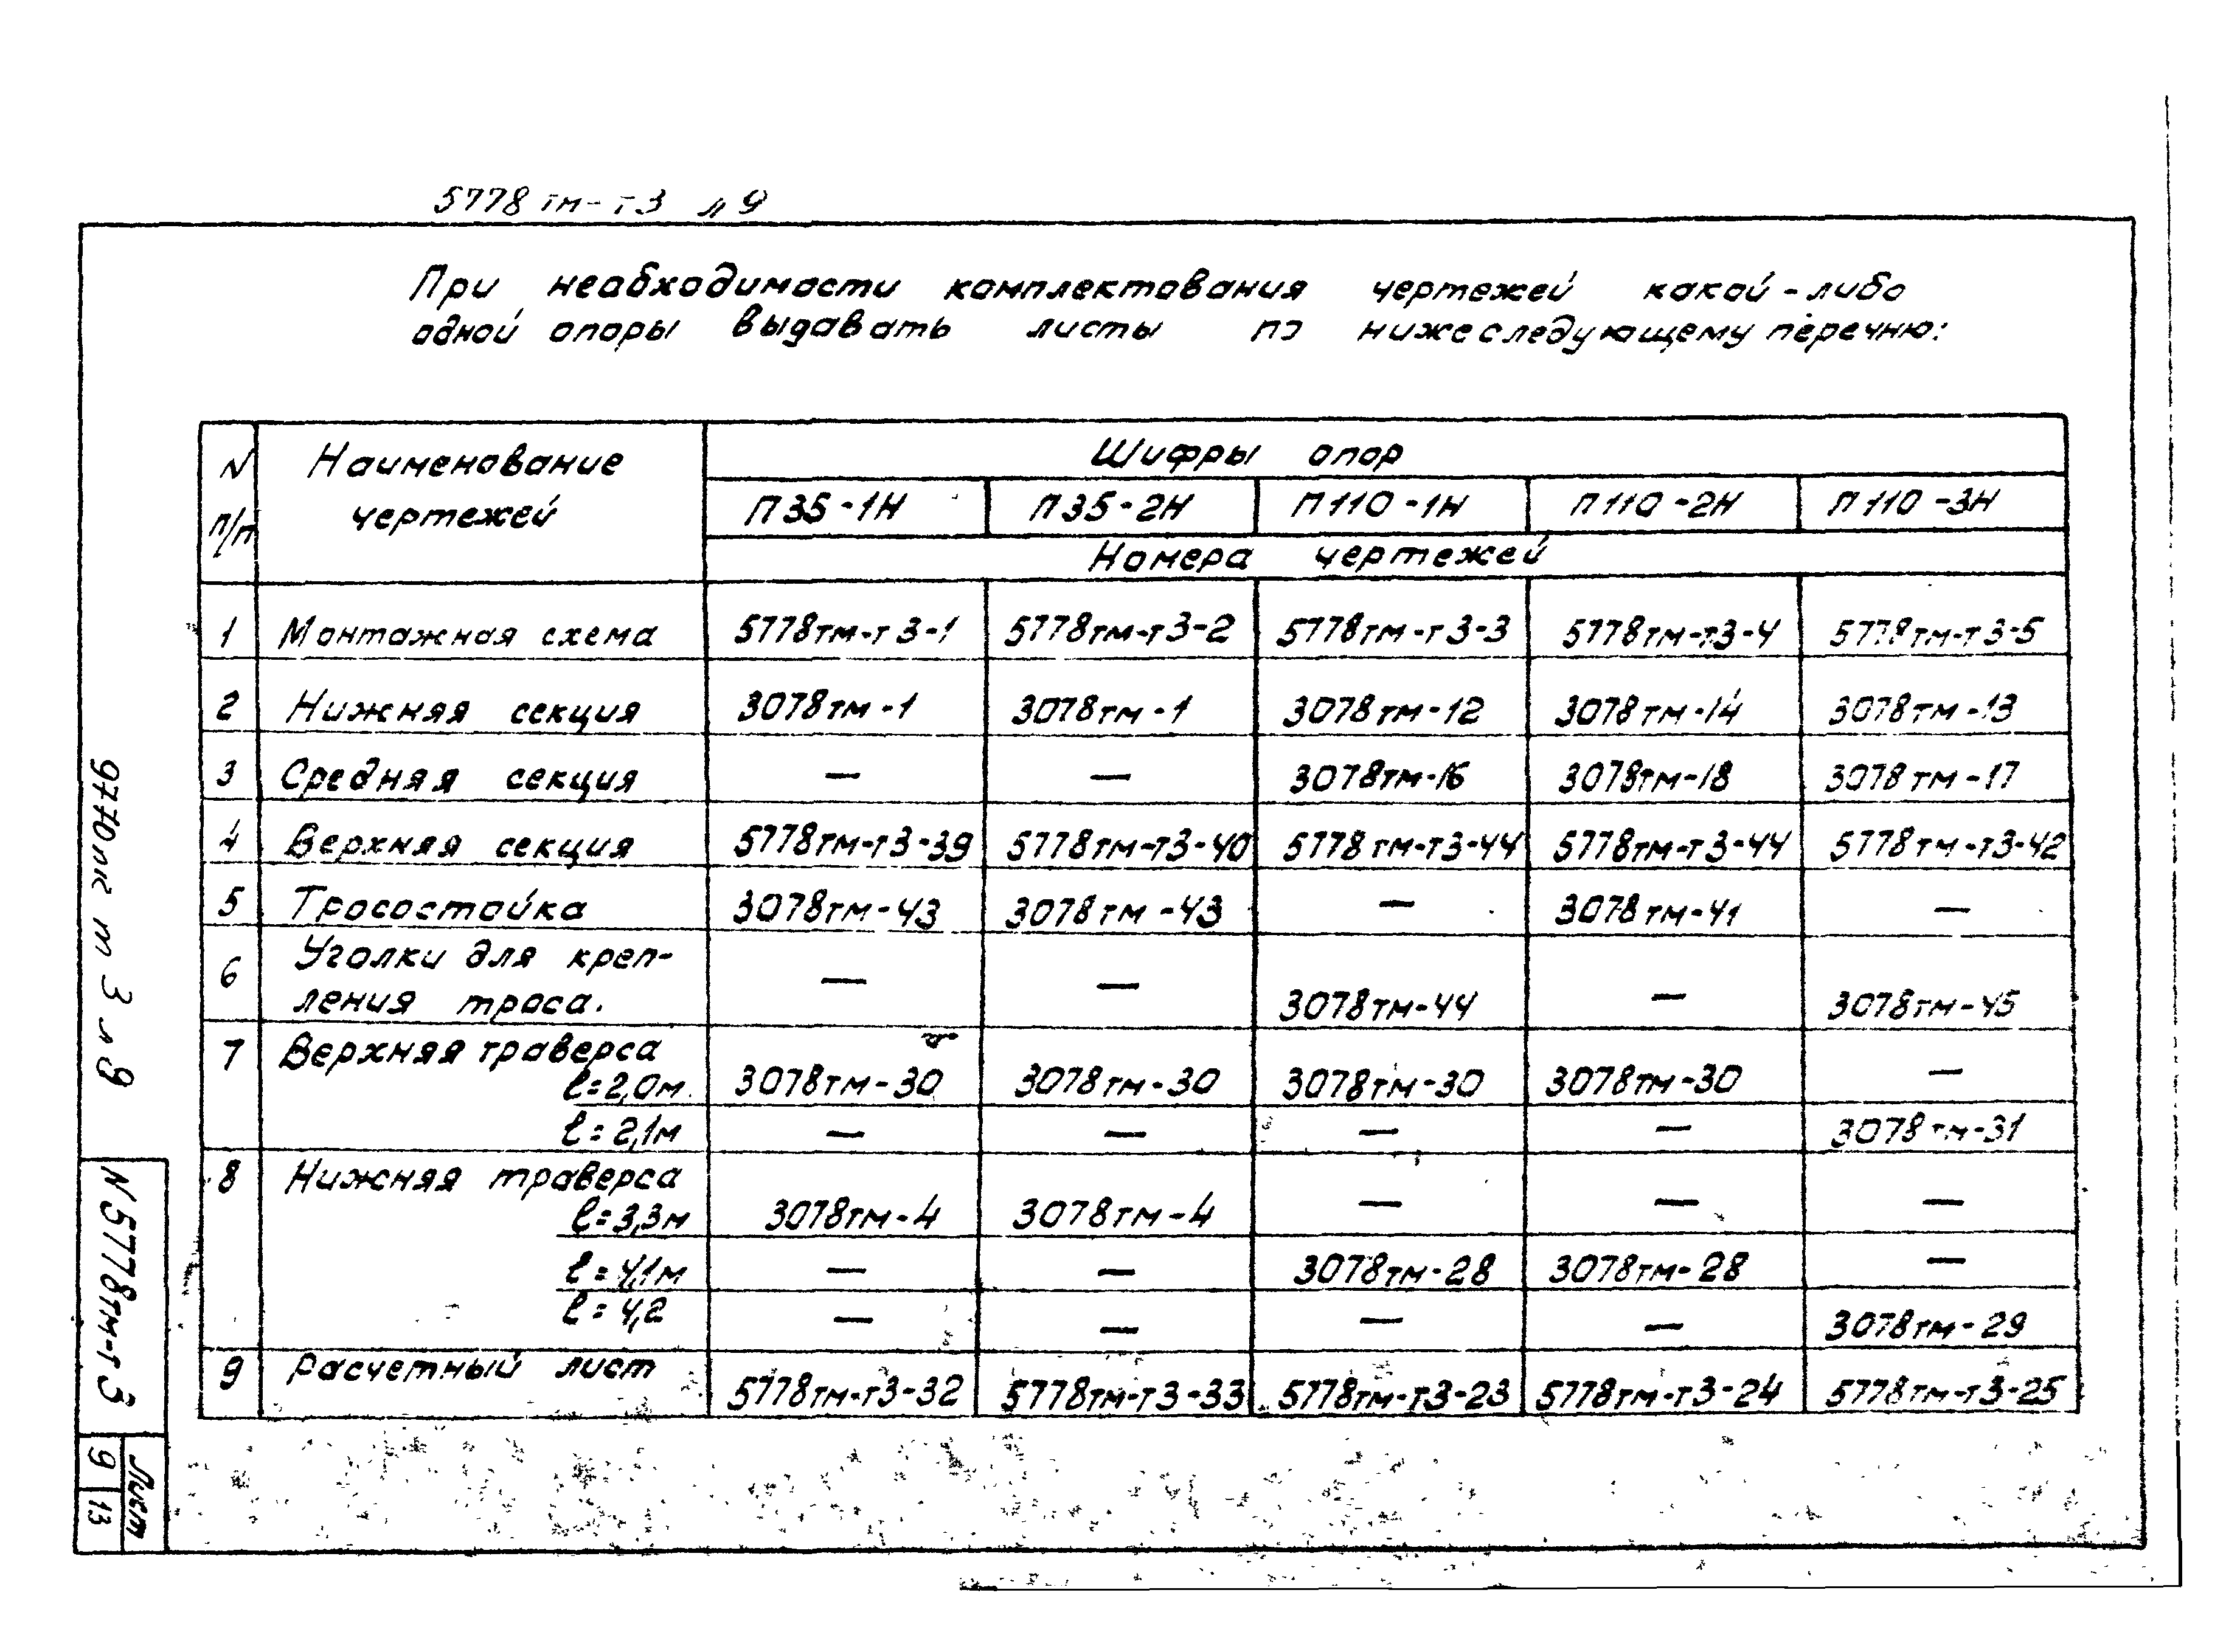 5778тм-т3 л9
При необходимости комплектования чертежей какой-либо
одной опоры выдавать листы по нижеследующему перечню:
N п/п Наименование чертежей Шифры опор
П35-1Н П35-2Н П110-1Н П110-2Н П110-3Н
Номера чертежей
1 Монтажная схема 5778тм-т3-1 5778тм-т3-2 5778тм-т3-3 5778тм-т3-4 5778тм-т3-5
2 Нижняя секция 3078тм-1 3078тм-1 3078тм-12 3078тм-14 3078тм-13
3 Средняя секция — — 3078тм-16 3078тм-18 3078тм-17
4 Верхняя секция 5778тм-т3-39 5778тм-т3-40 5778тм-т3-44 5778тм-т3-44 5778тм-т3-42
5 Тросостойка 3078тм-43 3078тм-43 — 3078тм-41 —
6 Уголки для креп-
ления троса. — — 3078тм-44 — 3078тм-45
7 Верхняя траверса
ℓ=2,0м 3078тм-30 3078тм-30 3078тм-30 3078тм-30 —
ℓ=2,1м — — — — 3078тм-31
8 Нижняя траверса
ℓ=3,3м 3078тм-4 3078тм-4 — — —
ℓ=4,1м — — 3078тм-28 3078тм-28 —
ℓ=4,2 — — — — 3078тм-29
9 Расчетный лист 5778тм-т3-32 5778тм-т3-33 5778тм-т3-23 5778тм-т3-24 5778тм-т3-25
т 3 л 9
N 5778тм-т3
Лист
9 13